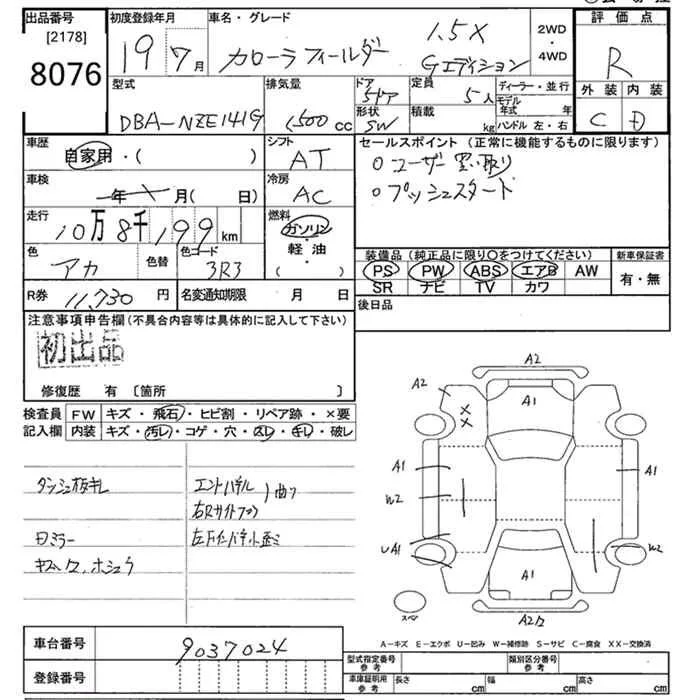 出品番号
[2178]
8076
初度登録年月
19 7月
車名・グレード
カローラフィールダー 1.5X
Gエディション
2WD
・
4WD
評価点
R
外装 内装
C D
型式
DBA-NZE141G
排気量
1500cc
ドア
5ドア
形状
SW
定員
5人
積載
kg
ディーラー・並行
モデル年式 年
ハンドル 左・右
車歴
自家用・( )
シフト
AT
車検
年 月( 日)
冷房
AC
走行
10万8千199km
燃料
ガソリン
・
軽・油
・
( )
色
アカ
色替
色コード
3R3
R券 11,730円
名変通知期限 月 日
セールスポイント(正常に機能するものに限ります)
○ユーザー買い取り
○プッシュスタート
装備品(純正品に限り○をつけてください)
PS PW ABS エアB AW
SR ナビ TV カワ
新車保証書
有・無
後日品
注意事項申告欄(不具合内容等は具体的に記入して下さい)
初出品
修復歴 有〔箇所 〕
検査員
記入欄
FW キズ・飛石・ヒビ割・リペア跡・×要
内装 キズ・汚レ・コゲ・穴・スレ・キレ・破レ
ダッシュ板キレ
日ミラー
右Rサイド
A2
A2
A1
XX
A1
W2
UA1
A1
W2
A1
スペア
A-キズ E-エクボ U-凹み W-補修跡 S-サビ C-腐食 XX-交換済
車台番号
9037024
登録番号
型式指定番号
参考
類別区分番号
参考
車庫証明用
参考
長さ cm
幅 cm
高さ cm